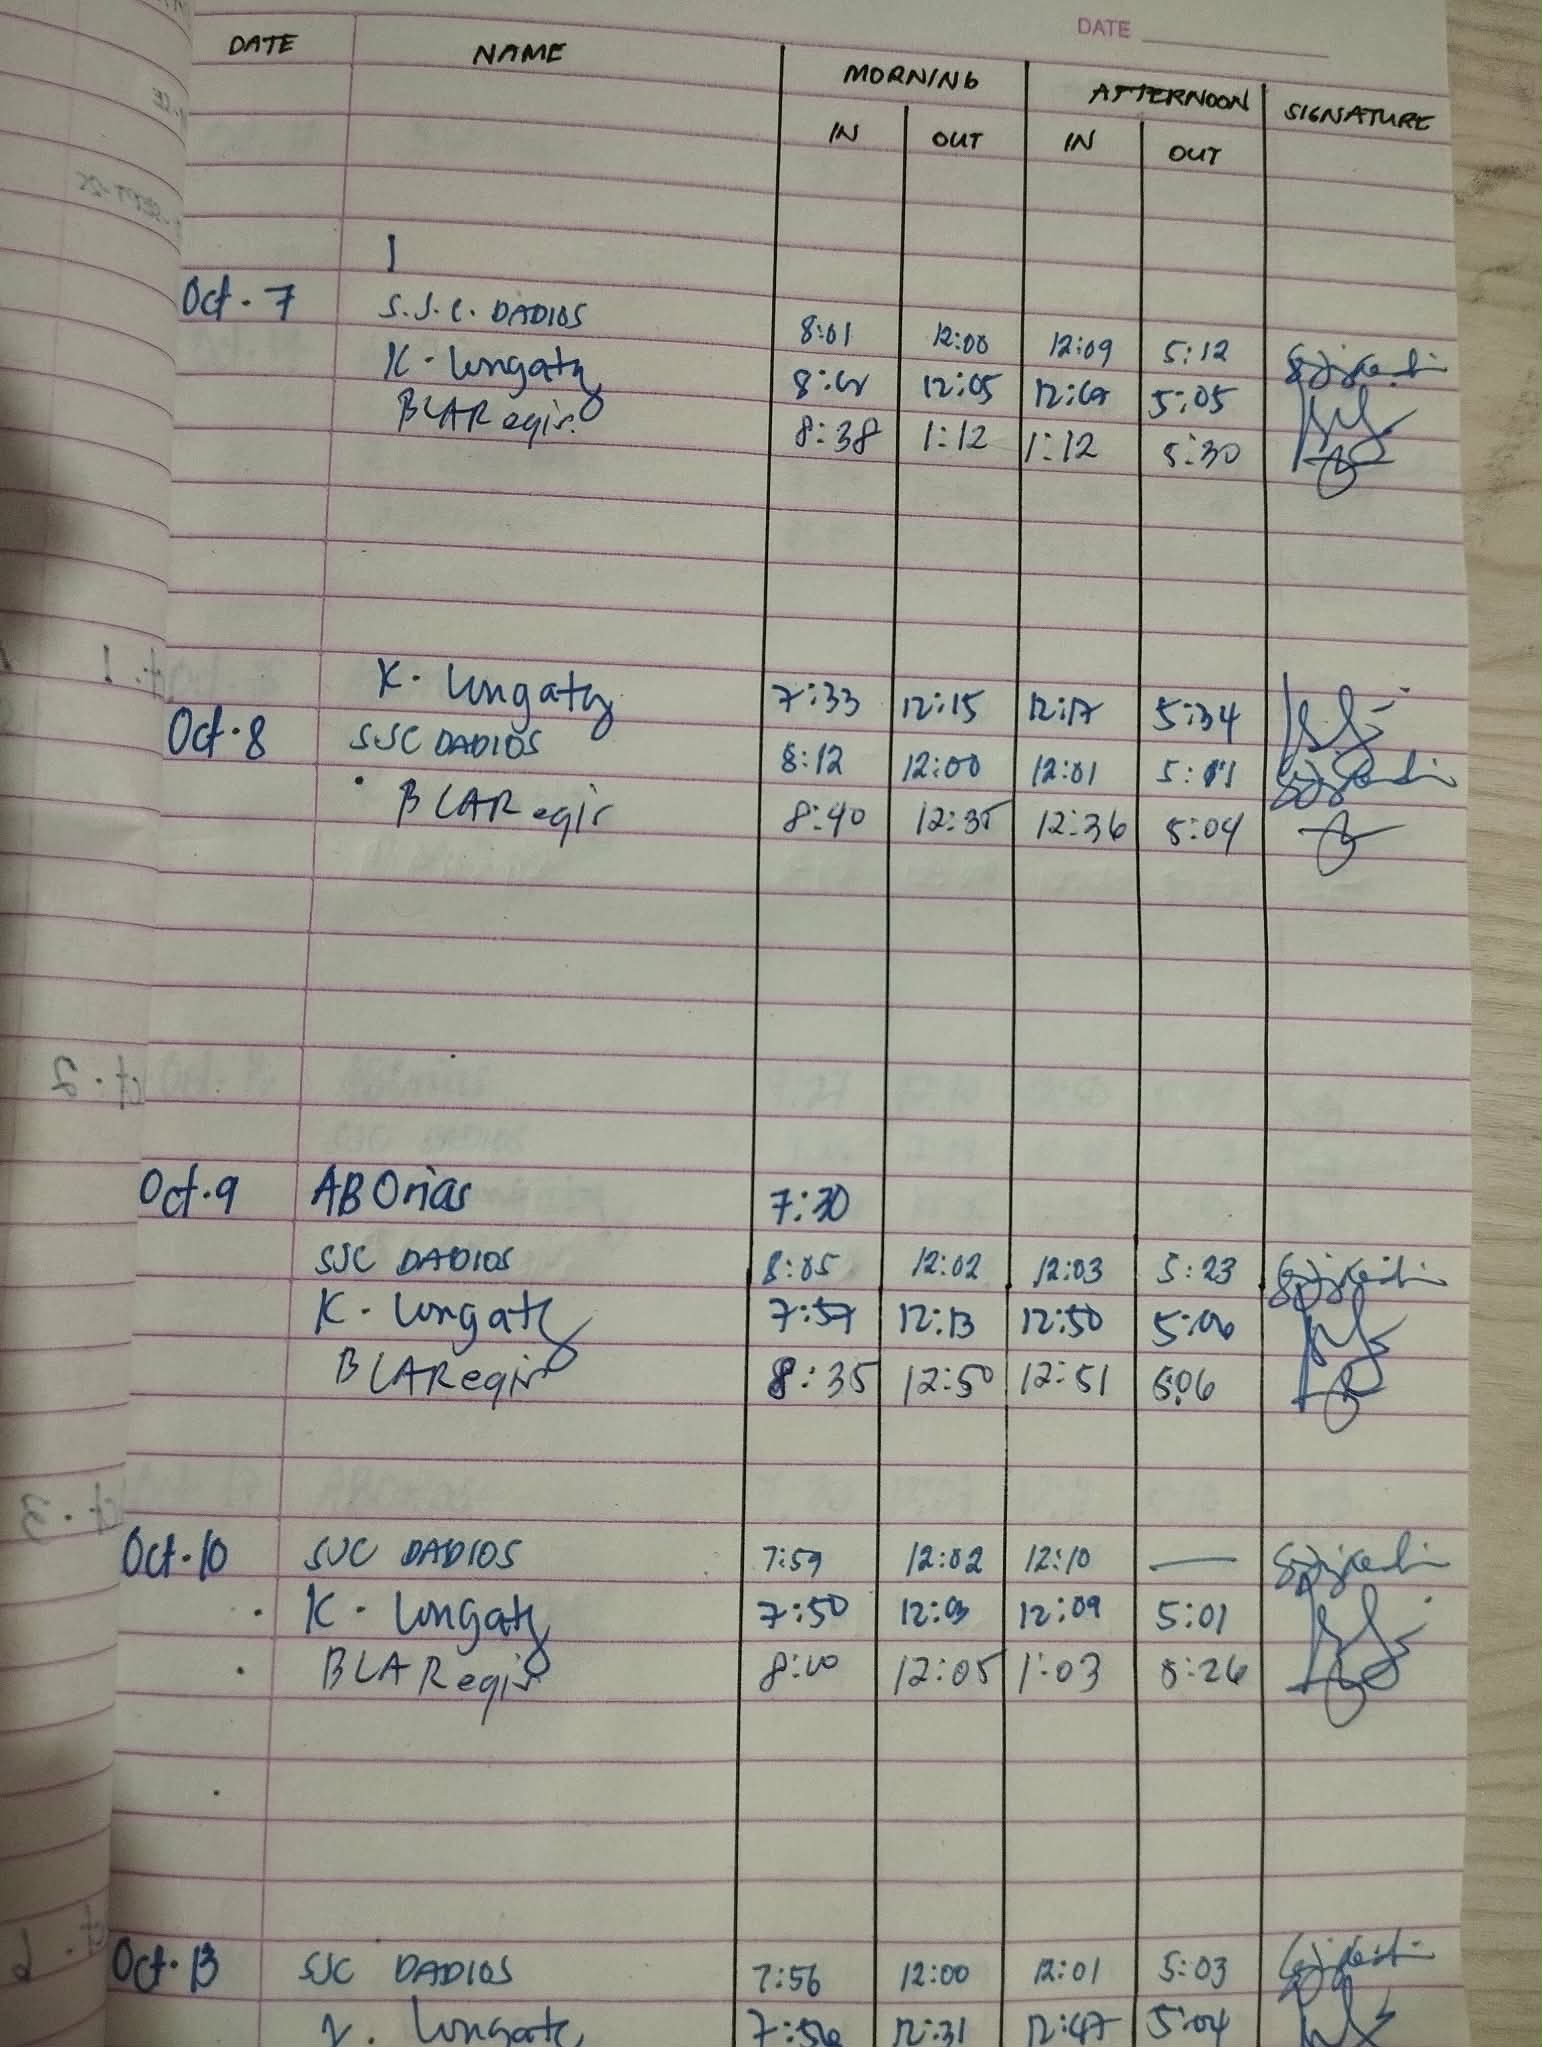 DATE
DATE NAME MORNING AFTERNOON SIGNATURE
IN OUT IN OUT
Oct. 7 S.J.C. DADIOS 8:01 12:00 12:09 5:12
K. Lungaty 12:05 5:05
BLARegis 8:38 1:12 1:12 5:30
K. Lungaty 7:33 12:15 12:17 5:34
Oct. 8 SJC DADIOS 8:12 12:00 12:01
BLARegis 8:40 12:35 12:36 5:04
Oct. 9 ABOrias 7:30
SJC DADIOS 8:05 12:02 12:03 5:23
K. Lungaty 7:57 12:13 12:50
BLARegis 8:35 12:50 12:51 5:06
Oct. 10 SJC DADIOS 7:59 12:02 12:10 —
K. Lungaty 7:50 12:03 12:09 5:01
BLARegis 12:05 1:03 5:26
Oct. 13 SJC DADIOS 7:56 12:00 12:01 5:03
Lungaty 7:56 12:31 12:47 5:04